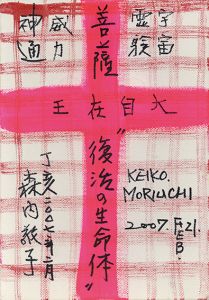 宇宙
霊験
菩薩
威力
神通
大自在王
“復活の生命体”
KEIKO.
MORIUCHI
2007. FEB. 21.
丁亥二〇〇七年二月
森内敬子